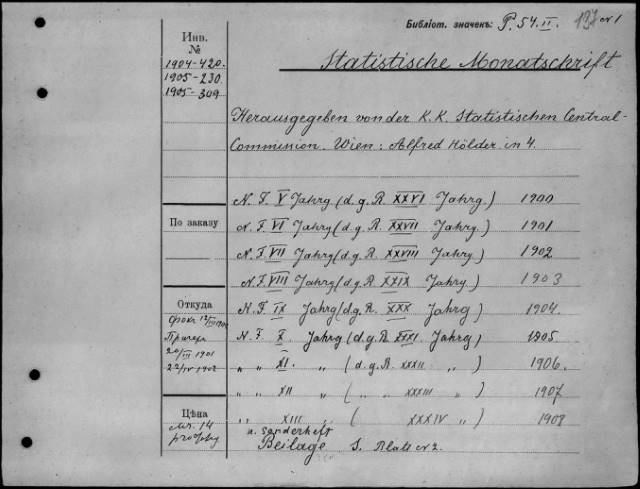 Библіот. значекъ: P. 54. II. 137 № 1
Инв.
№
1904-420.
1905-230.
1905-309
Statistische Monatschrift
Herausgegeben von der K. K. Statistischen Central-
Commission. Wien: Alfred Hölder in 4.
N. F. V Jahrg (d. g. R. XXVI Jahrg.) 1900
N. F. VI Jahrg (d. g. R. XXVII Jahrg.) 1901
По заказу
N. F. VII Jahrg (d. g. R. XXVIII Jahrg.) 1902
N. F. VIII Jahrg (d. g. R. XXIX Jahrg.) 1903
Откуда
N. F. IX Jahrg (d. g. R. XXX Jahrg) 1904.
N. F. X. Jahrg (d. g. R. XXXI. Jahrg) 1905
20/III 1901
22/IV 1902
" " XI. " (d. g. R. XXXII " ) 1906.
" " XII " ( " " XXXIII " ) 1907
Цѣна
" " XIII " ( XXXIV " ) 1908
u. Sonderheft
Beilage S. Blatt № 2.